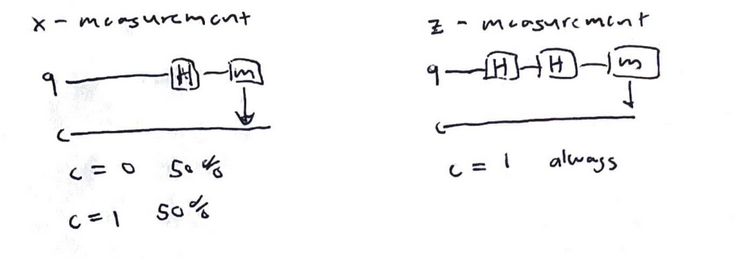 x - measurement
q H m
c
c = 0 50%
c = 1 50%
z - measurement
q H H m
c
c = 1 always